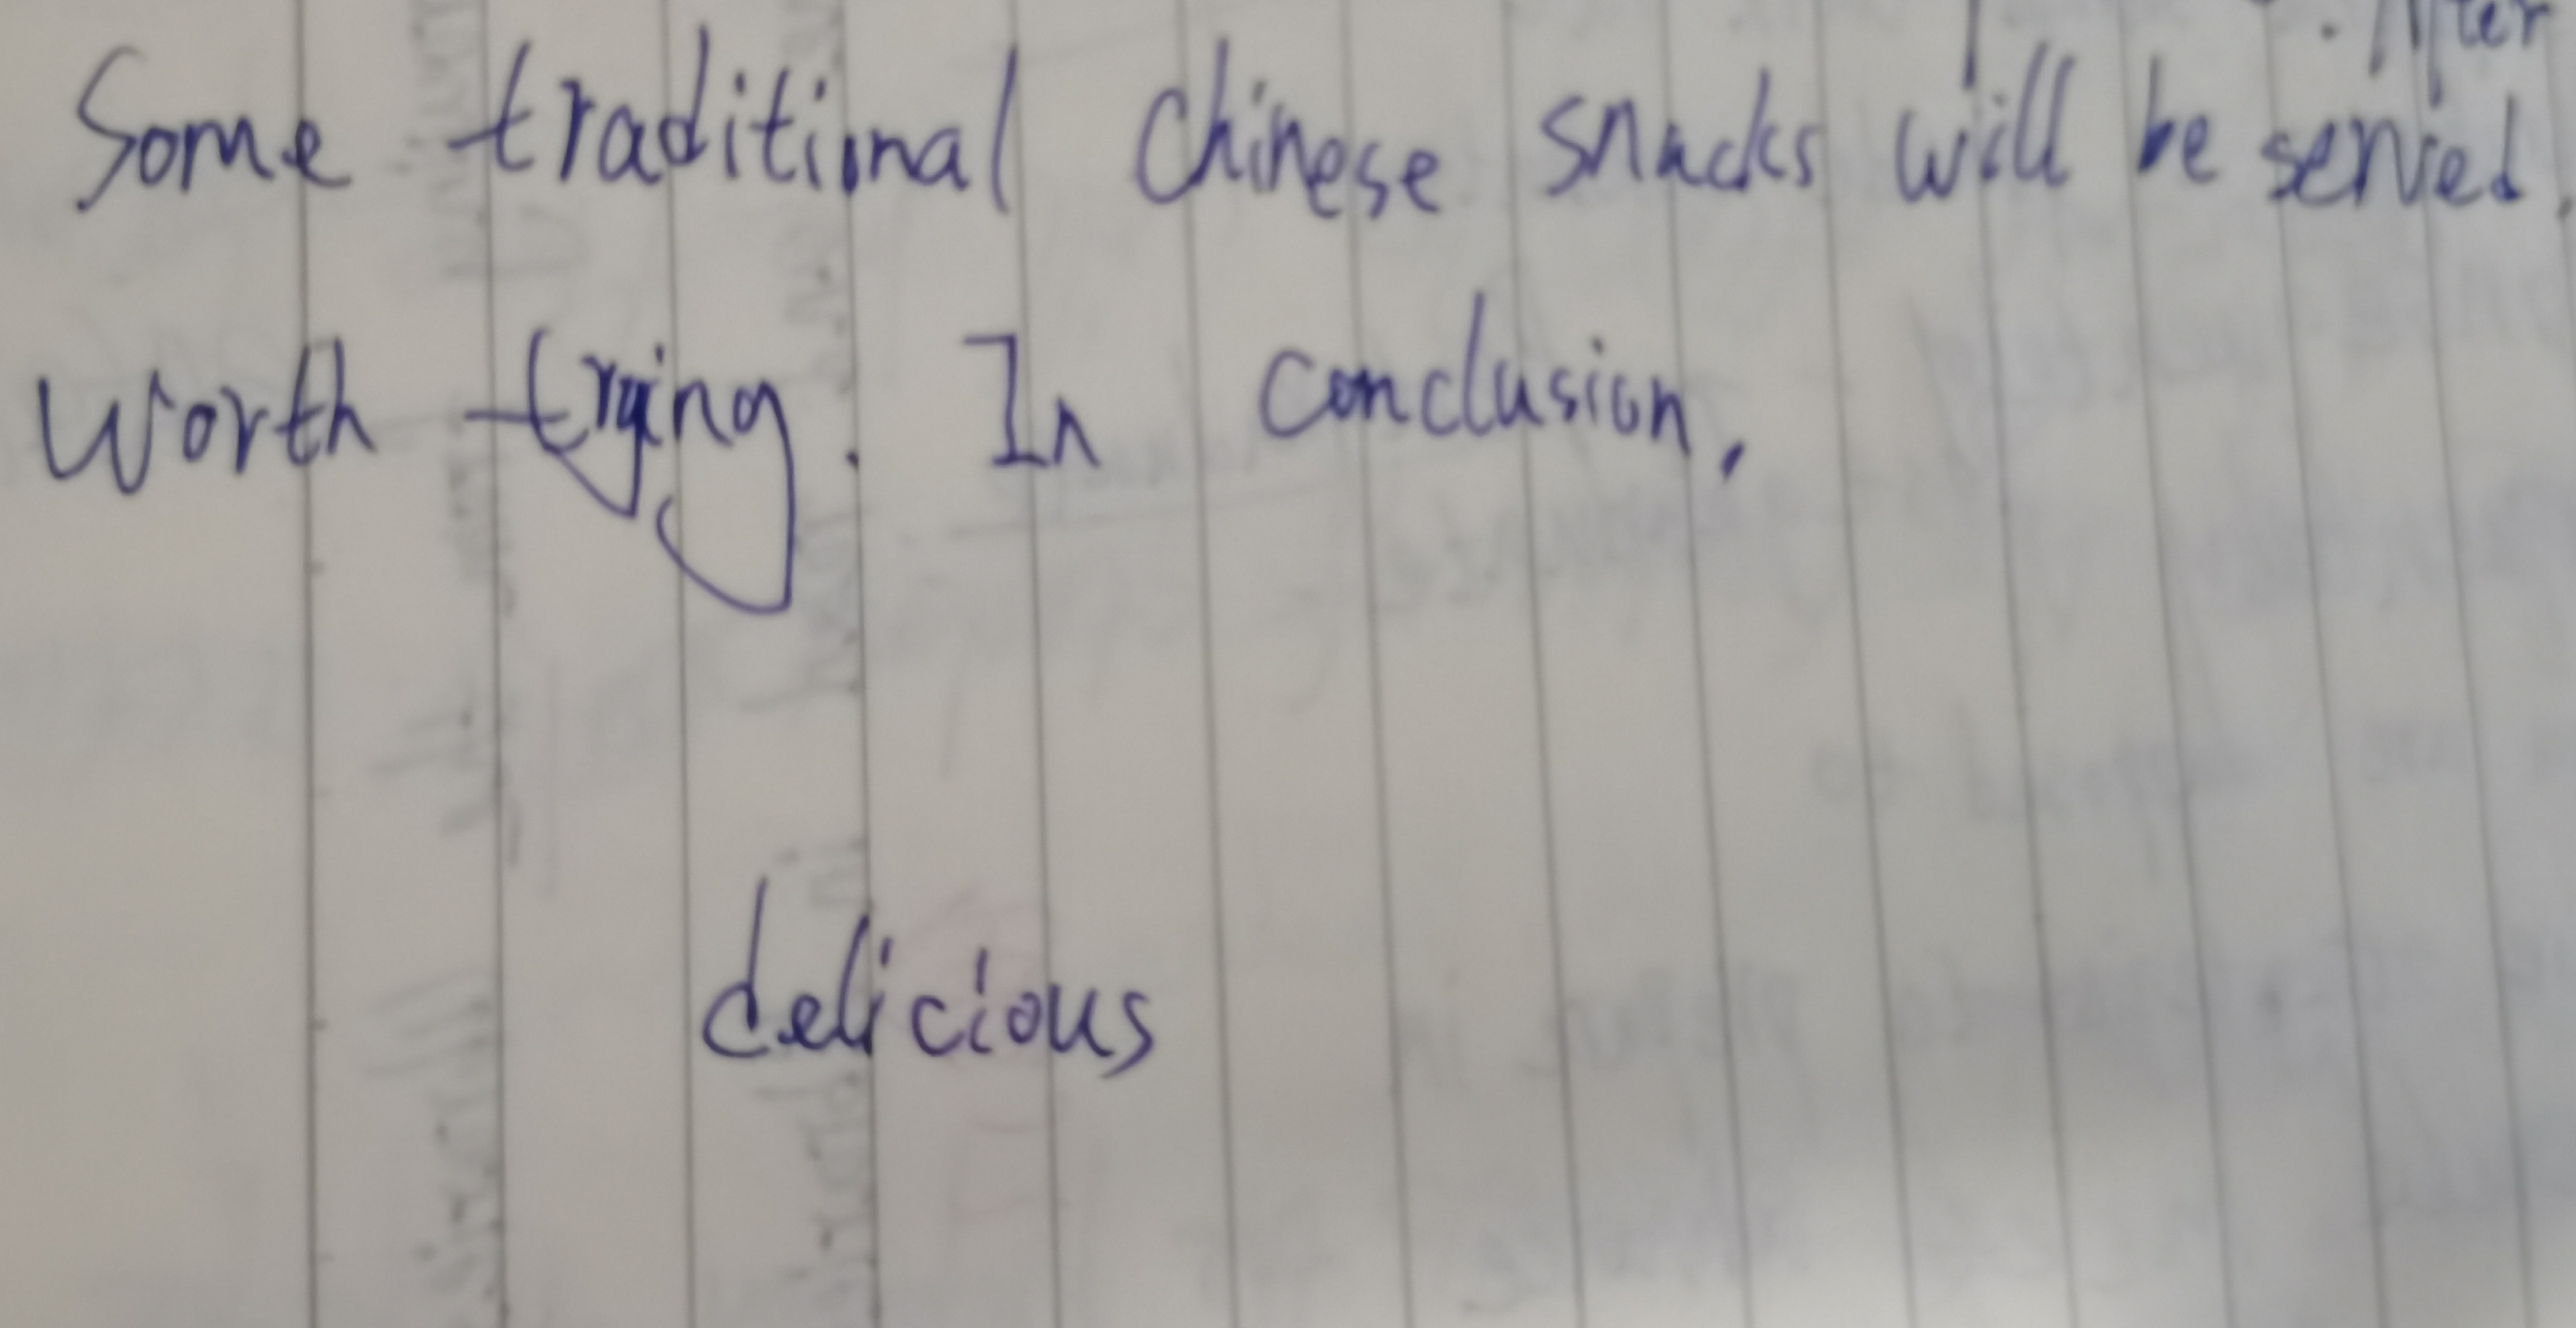 . After
Some traditional Chinese snacks will be served.
worth trying. In conclusion,
delicious